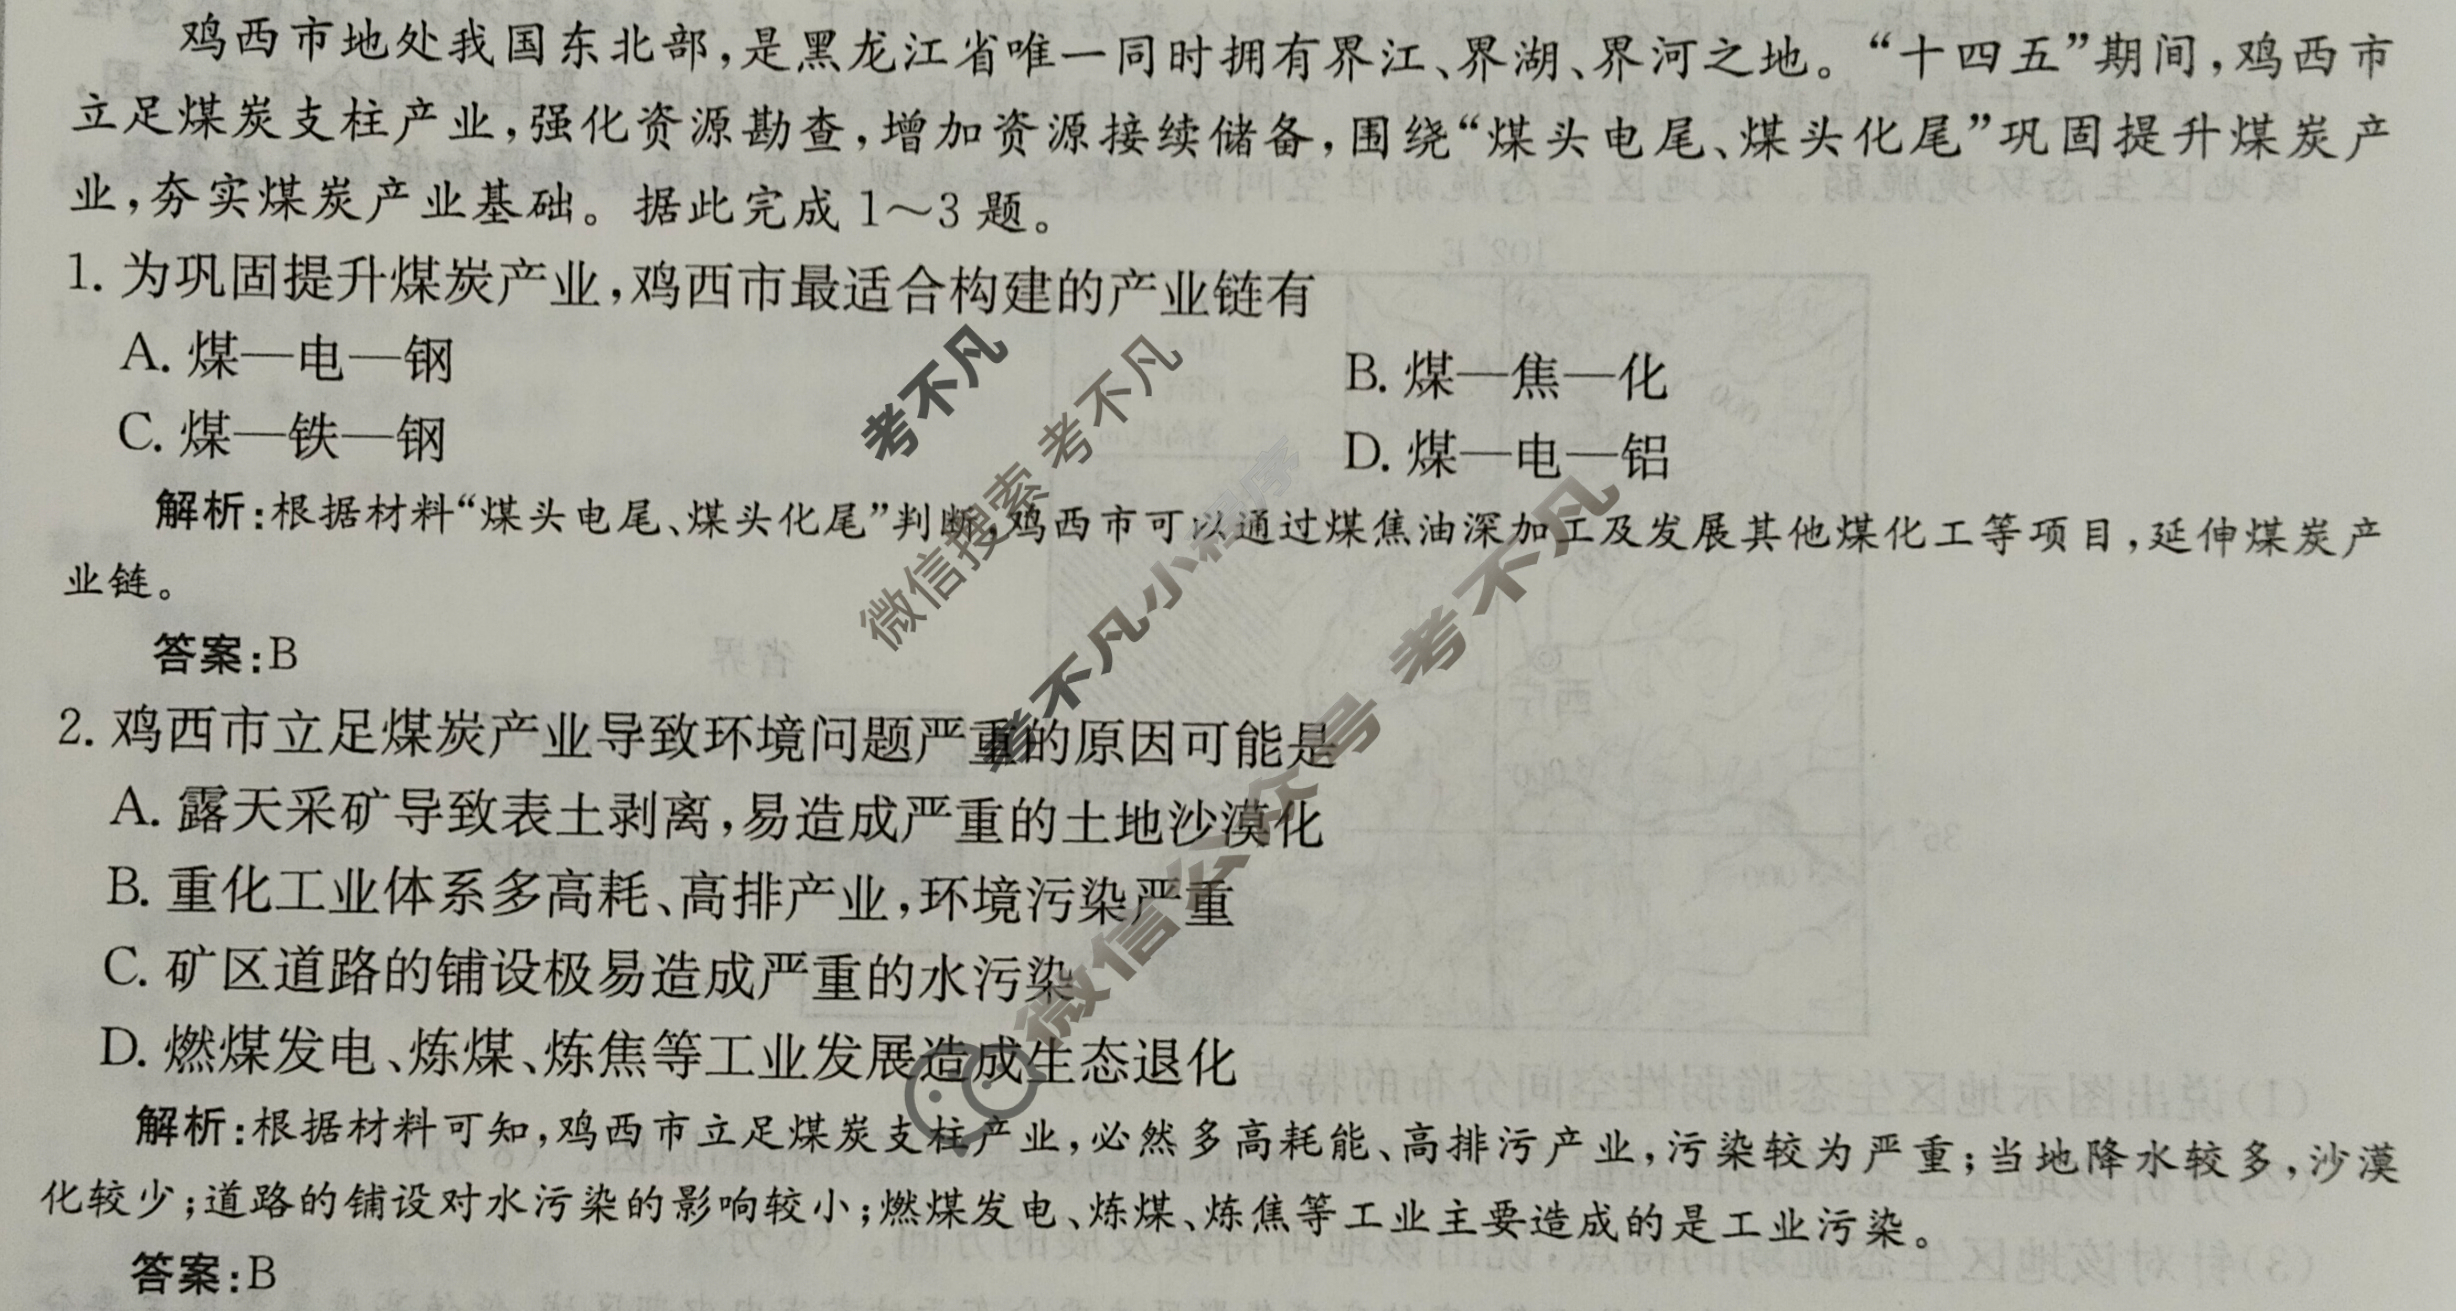 鸡西市地处我国东北部,是黑龙江省唯一同时拥有界江、界湖、界河之地。“十四五”期间,鸡西市
立足煤炭支柱产业,强化资源勘查,增加资源接续储备,围绕“煤头电尾、煤头化尾”巩固提升煤炭产
业,夯实煤炭产业基础。据此完成1～3题。
1. 为巩固提升煤炭产业,鸡西市最适合构建的产业链有
A. 煤—电—钢
B. 煤—焦—化
C. 煤—铁—钢
D. 煤—电—铝
解析:根据材料“煤头电尾、煤头化尾”判断,鸡西市可以通过煤焦油深加工及发展其他煤化工等项目,延伸煤炭产
业链。
答案:B
2. 鸡西市立足煤炭产业导致环境问题严重的原因可能是
A. 露天采矿导致表土剥离,易造成严重的土地沙漠化
B. 重化工业体系多高耗、高排产业,环境污染严重
C. 矿区道路的铺设极易造成严重的水污染
D. 燃煤发电、炼煤、炼焦等工业发展造成生态退化
解析:根据材料可知,鸡西市立足煤炭支柱产业,必然多高耗能、高排污产业,污染较为严重;当地降水较多,沙漠
化较少;道路的铺设对水污染的影响较小;燃煤发电、炼煤、炼焦等工业主要造成的是工业污染。
答案:B
考不凡
微信搜索 考不凡
考不凡小程序
微信公众号 考不凡